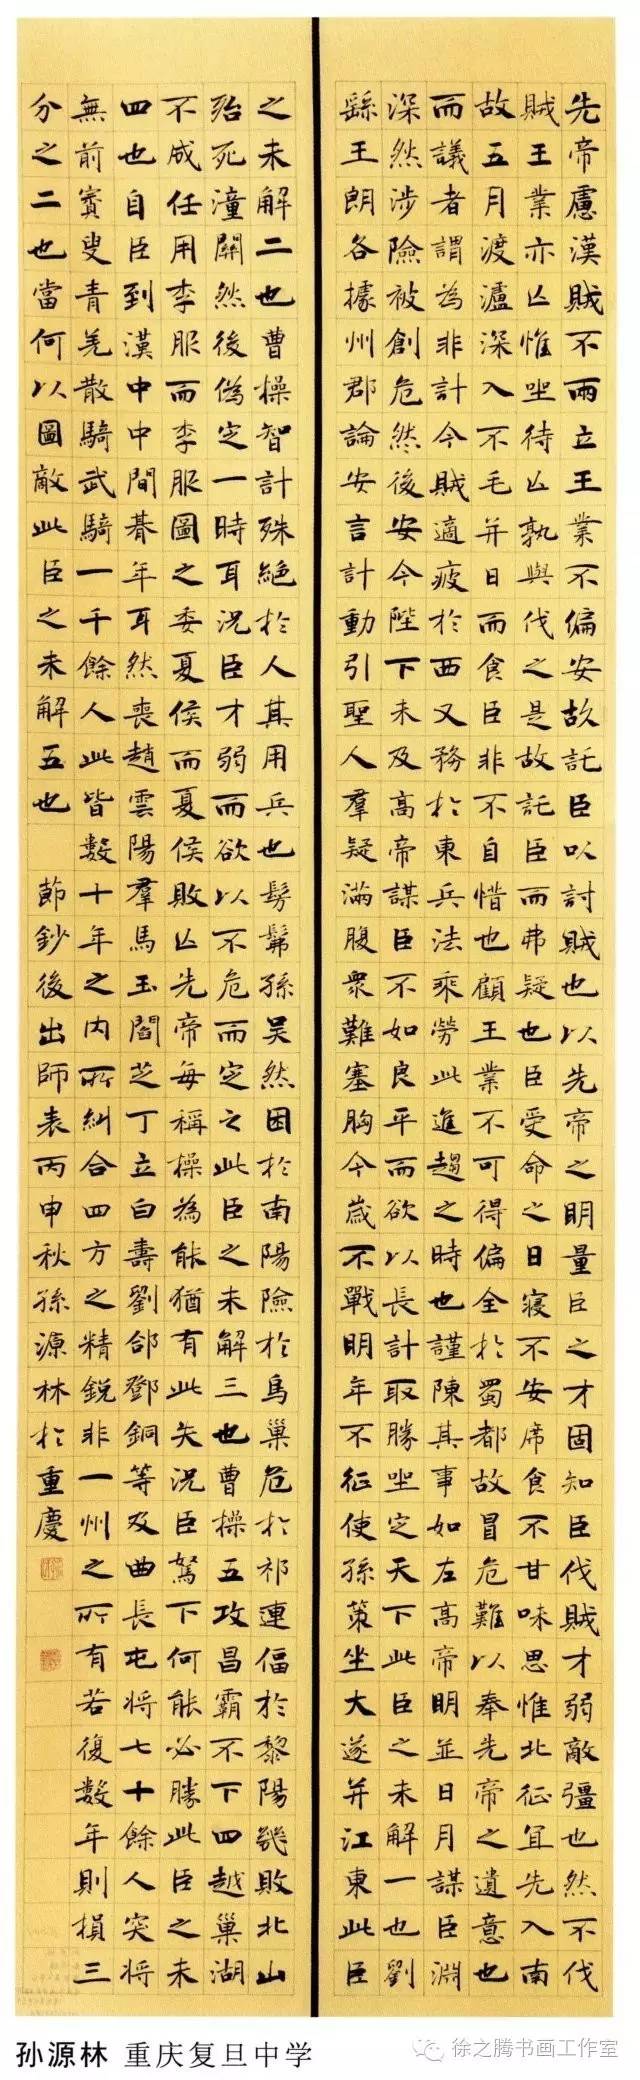 先帝慮漢賊不兩立王業不偏安故託臣以討賊也以先帝之明量臣之才固知臣伐賊才弱敵彊也然不伐
賊王業亦亡惟坐待亡孰與伐之是故託臣而弗疑也臣受命之日寢不安席食不甘味思惟北征宜先入南
故五月渡瀘深入不毛并日而食臣非不自惜也顧王業不可得偏全於蜀都故冒危難以奉先帝之遺意也
而議者謂為非計今賊適疲於西又務於東兵法乘勞此進趨之時也謹陳其事如左高帝明並日月謀臣淵
深然涉險被創危然後安今陛下未及高帝謀臣不如良平而欲以長計取勝坐定天下此臣之未解一也劉
繇王朗各據州郡論安言計動引聖人羣疑滿腹衆難塞胸今歲不戰明年不征使孫策坐大遂并江東此臣
之未解二也曹操智計殊絕於人其用兵也髣髴孫吳然困於南陽險於烏巢危於祁連偪於黎陽幾敗北山
殆死潼關然後偽定一時耳況臣才弱而欲以不危而定之此臣之未解三也曹操五攻昌霸不下四越巢湖
不成任用李服而李服圖之委夏侯而夏侯敗亡先帝每稱操為能猶有此失況臣駑下何能必勝此臣之未
四也自臣到漢中中間朞年耳然喪趙雲陽羣馬玉閻芝丁立白壽劉郃鄧銅等及曲長屯將七十餘人突將
無前賨叟青羌散騎武騎一千餘人此皆數十年之內所糾合四方之精銳非一州之所有若復數年則損三
分之二也當何以圖敵此臣之未解五也 節鈔後出師表丙申秋孫源林於重慶
孙源林 重庆复旦中学
徐之腾书画工作室